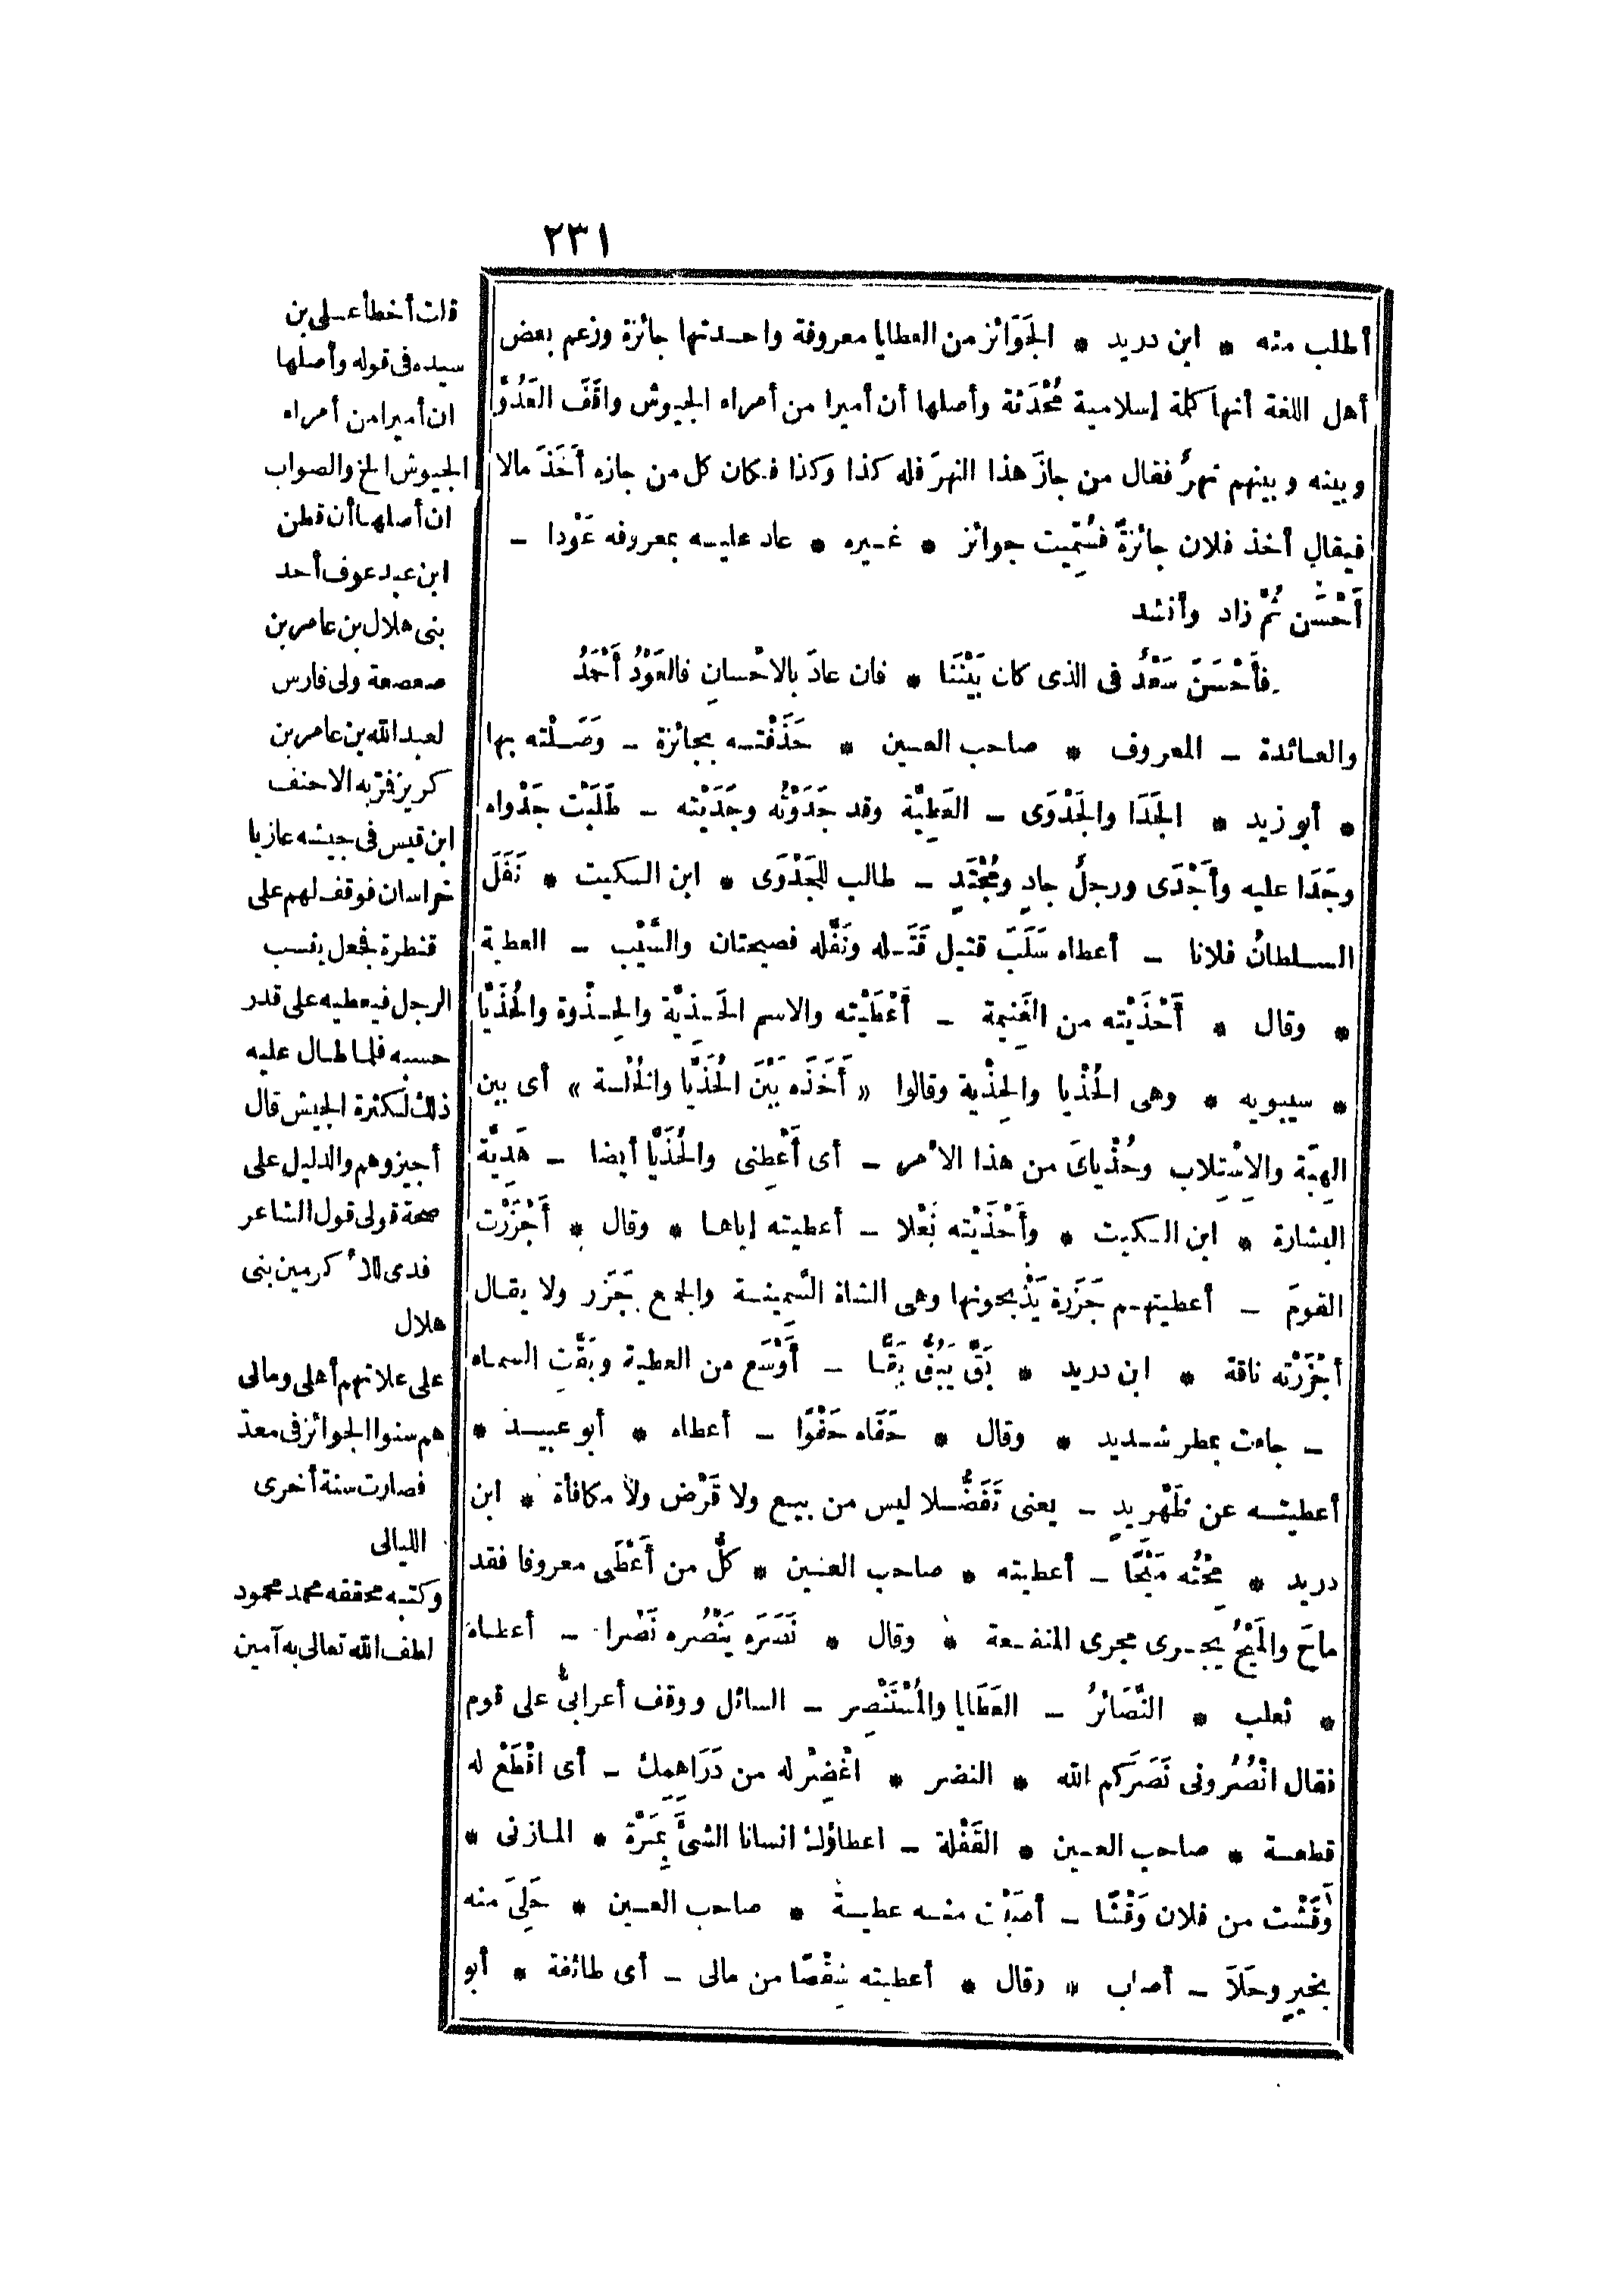 ٢٣١
أطلب منه * ابن دريد * الجَوَائز من العطايا معروفة واحدتها جائزة وزعم بعض
أهل اللغة أنها كلمة إسلامية مُحْدَثة وأصلها أن أميرا من أمراء الجيوش واقَفَ العَدُوَّ
وبينه وبينهم نهرٌ فقال من جازَ هذا النهرَ فله كذا وكذا فكان كل من جازه أَخَذَ مالا
فيقال أخذ فلان جائزةً فسُمِّيت جوائز * غيره * عاد عليه بمعروفه عَوْدا –
أَحْسَن ثُمَّ زاد وأنشد
فأَحْسَنَ سَعْدٌ فى الذى كان بَيْنَنَا * فان عادَ بالاحْسانِ فالعَوْدُ أَحْمَدُ
والعائدة – المعروف * صاحب العين * حَذَفْته بجائزة – وَصَلْته بها
* أبو زيد * الجَدَا والجَدْوَى – العَطِيَّة وقد جَدَوْتُه وجَدَيْته – طَلَبْت جَدْواه
وجَدَا عليه وأَجْدَى ورجلٌ جادٍ ومُجْتَدٍ – طالب للجَدْوَى * ابن السكيت * نَفَلَ
السلطانُ فلانا – أعطاه سَلَبَ قتيل قَتَله ونَفَّله فصيحتان والسَّيْب – العطية
* وقال * أَحْذَيْته من الغَنيمة – أَعْطَيْته والاسم الحَذِيَّة والحِذْوة والحُذَيَّا
* سيبويه * وهى الحُذْيا والحِذْية وقالوا « أَخَذَه بَيْنَ الحُذَيَّا والخُلْسة » أى بين
الهِبَة والاِسْتِلاب وحُذْياىَ من هذا الأمر – أى أَعْطِنى والحُذَيَّا أيضا – هَدِيَّة
البشارة * ابن السكيت * وأَحْذَيْته نَعْلا – أعطيته إياها * وقال * أَجْزَرْت
القومَ – أعطيتهم جَزَرة يَذْبحونها وهى الشاة السَّمينة والجمع جَزَر ولا يقال
أَجْزَرْته ناقة * ابن دريد * بَقَّ يَبُقُّ بَقًّا – أَوْسَع من العطية وبَقَّتِ السماء
– جاءت بمطر شديد * وقال * حَفَاه حَفْوًا – أعطاه * أبو عبيد *
أعطيته عن ظَهْرِيدٍ – يعنى تَفَضُّلا ليس من بيع ولا قَرْض ولا مكافأة * ابن
دريد * مِحْتُه مَيْحًا – أعطيته * صاحب العين * كلُّ من أَعْطَى معروفا فقد
ماحَ والمَيْحُ يجرى مجرى المنفعة * وقال * نَصَرَه يَنْصُره نَصْرا – أعطاه
* ثعلب * النَّصَائرُ – العَطَايا والمُسْتَنْصِر – السائل ووقف أعرابىٌّ على قوم
فقال انْصُرونى نَصَرَكم الله * النضر * اغْضِرْ له من دَرَاهِمِك – أى اقْطَعْ له
قطعة * صاحب العين * القَفْلة – اعطاؤك انسانا الشىءَ بِمَرَّة * المازنى *
وَقَشْت من فلان وَقْشًا – أصَبْت منه عطية * صاحب العين * حَلِىَ منه
بخيرٍ وحَلَا – أصاب * وقال * أعطيته شِقْصًا من مالى – أى طائفة * أبو
قلت أخطأ على بن
سيده فى قوله وأصلها
ان أميرا من أمراء
الجيوش الخ والصواب
ان أصلها أن قطن
ابن عبد عوف أحد
بنى هلال بن عامر بن
صعصعة ولى فارس
لعبد الله بن عامر بن
كريز فمرّ به الاحنف
ابن قيس فى جيشه غازيا
خراسان فوقف لهم على
قنطرة فجعل ينسب
الرجل فيعطيه على قدر
حسبه فلما طال عليه
ذلك لكثرة الجيش قال
أجيزوهم والدليل على
صحة قولى قول الشاعر
فدى للأكرمين بنى
هلال
على علاتهم أهلى ومالى
هم سنوا الجوائز فى معدّ
فصارت سنة أخرى
الليالى
وكتبه محققه محمد محمود
لطف الله تعالى به آمين